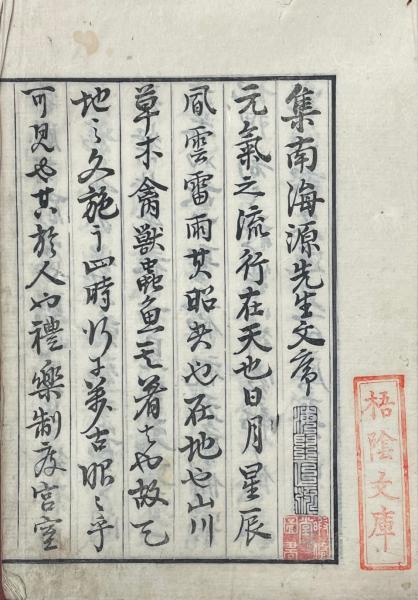 集南海源先生文序
元氣之流行在天也日月星辰
風雲雷雨其昭也在地也山川
草木禽獸蟲魚其著也故天
地之文施于四時行于萬古昭々乎
可見也其於人也禮樂制度宮室
梧陰文庫